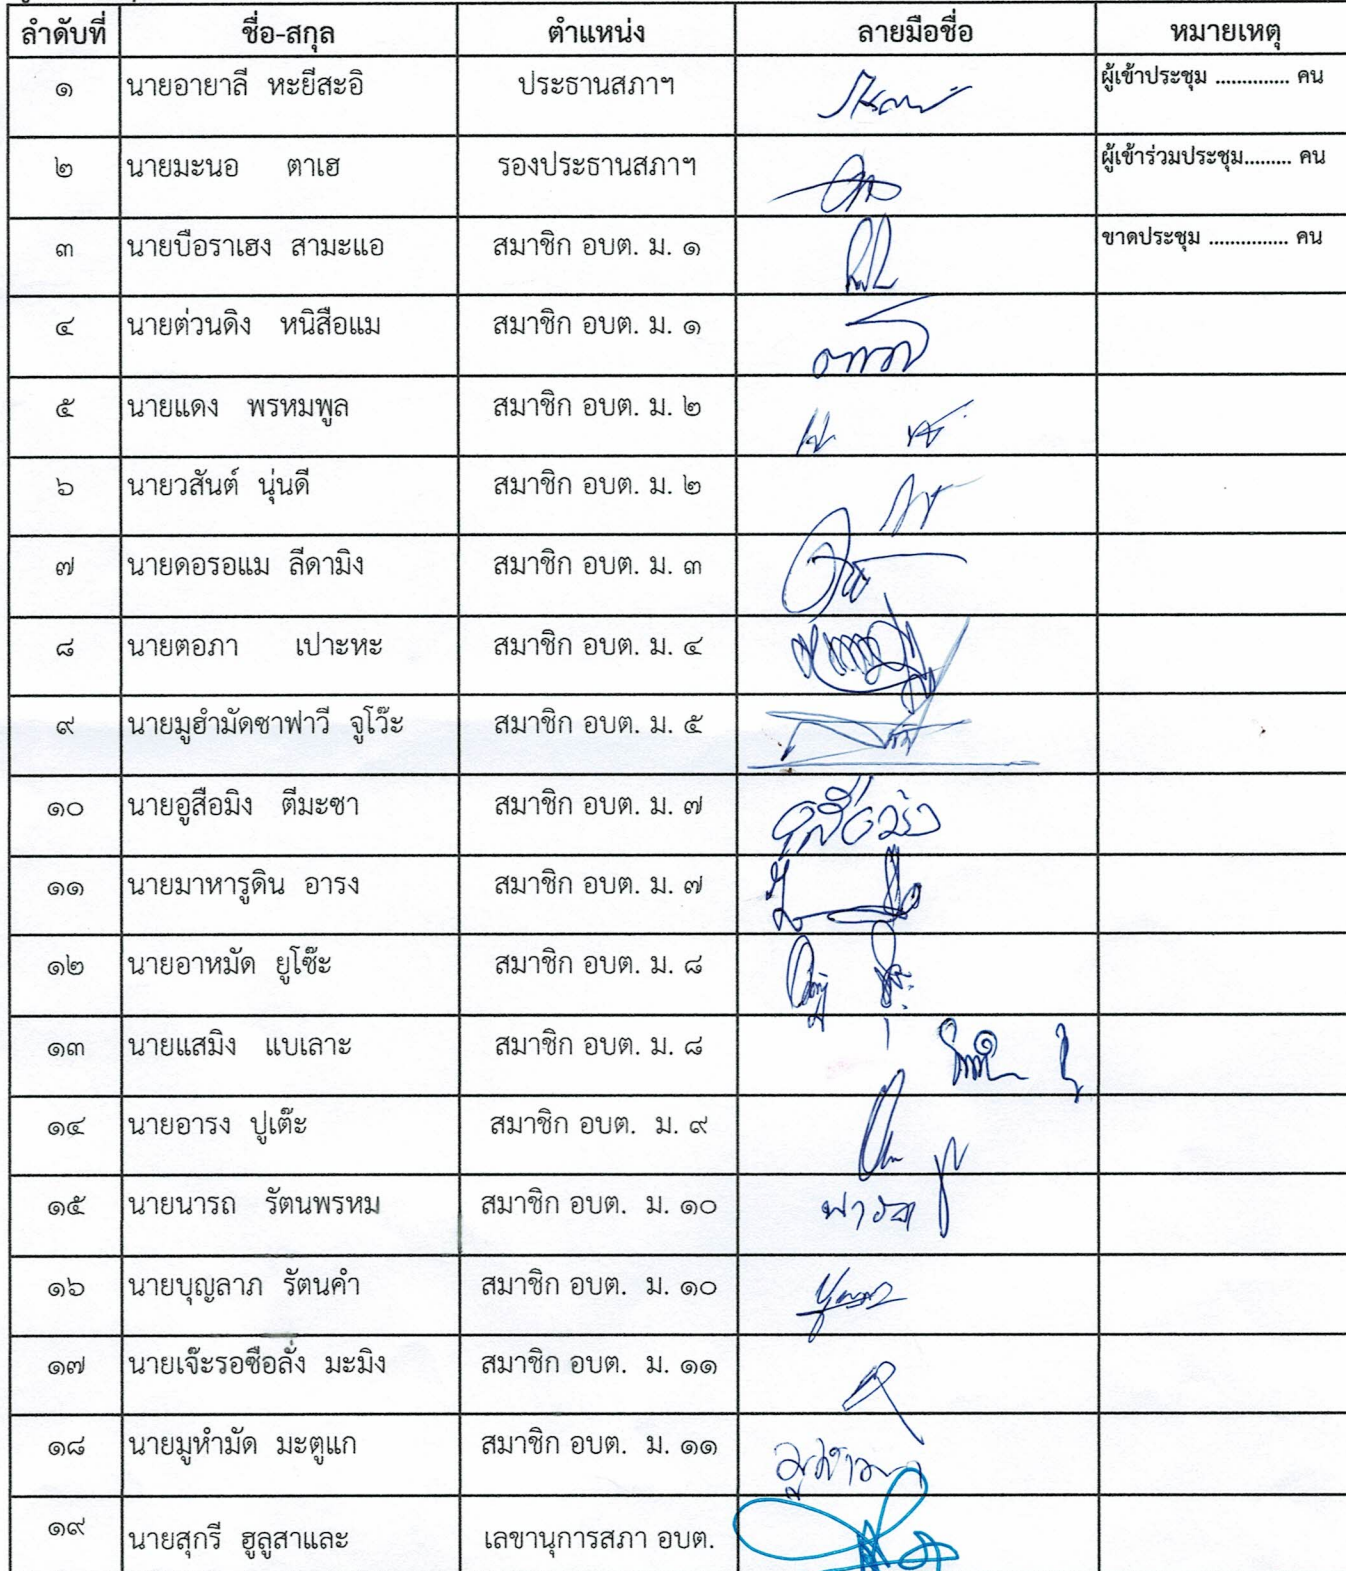 ลำดับที่ ชื่อ-สกุล ตำแหน่ง ลายมือชื่อ หมายเหตุ
๑ นายอายาลี หะยีสะอิ ประธานสภาฯ ผู้เข้าประชุม .............. คน
๒ นายมะนอ ตาเฮ รองประธานสภาฯ ผู้เข้าร่วมประชุม......... คน
๓ นายบือราเฮง สามะแอ สมาชิก อบต. ม. ๑ ขาดประชุม ............... คน
๔ นายต่วนดิง หนิสือแม สมาชิก อบต. ม. ๑
๕ นายแดง พรหมพูล สมาชิก อบต. ม. ๒
๖ นายวสันต์ นุ่นดี สมาชิก อบต. ม. ๒
๗ นายดอรอแม ลีดามิง สมาชิก อบต. ม. ๓
๘ นายตอภา เปาะหะ สมาชิก อบต. ม. ๔
๙ นายมูฮำมัดซาฟาวี จูโว๊ะ สมาชิก อบต. ม. ๕
๑๐ นายอูสือมิง ตีมะซา สมาชิก อบต. ม. ๗ อูสือมิง
๑๑ นายมาหารูดิน อารง สมาชิก อบต. ม. ๗
๑๒ นายอาหมัด ยูโซ๊ะ สมาชิก อบต. ม. ๘
๑๓ นายแสมิง แบเลาะ สมาชิก อบต. ม. ๘
๑๔ นายอารง ปูเต๊ะ สมาชิก อบต. ม. ๙
๑๕ นายนารถ รัตนพรหม สมาชิก อบต. ม. ๑๐
๑๖ นายบุญลาภ รัตนคำ สมาชิก อบต. ม. ๑๐
๑๗ นายเจ๊ะรอซือลั่ง มะมิง สมาชิก อบต. ม. ๑๑
๑๘ นายมูหำมัด มะตูแก สมาชิก อบต. ม. ๑๑
๑๙ นายสุกรี ฮูลูสาและ เลขานุการสภา อบต.